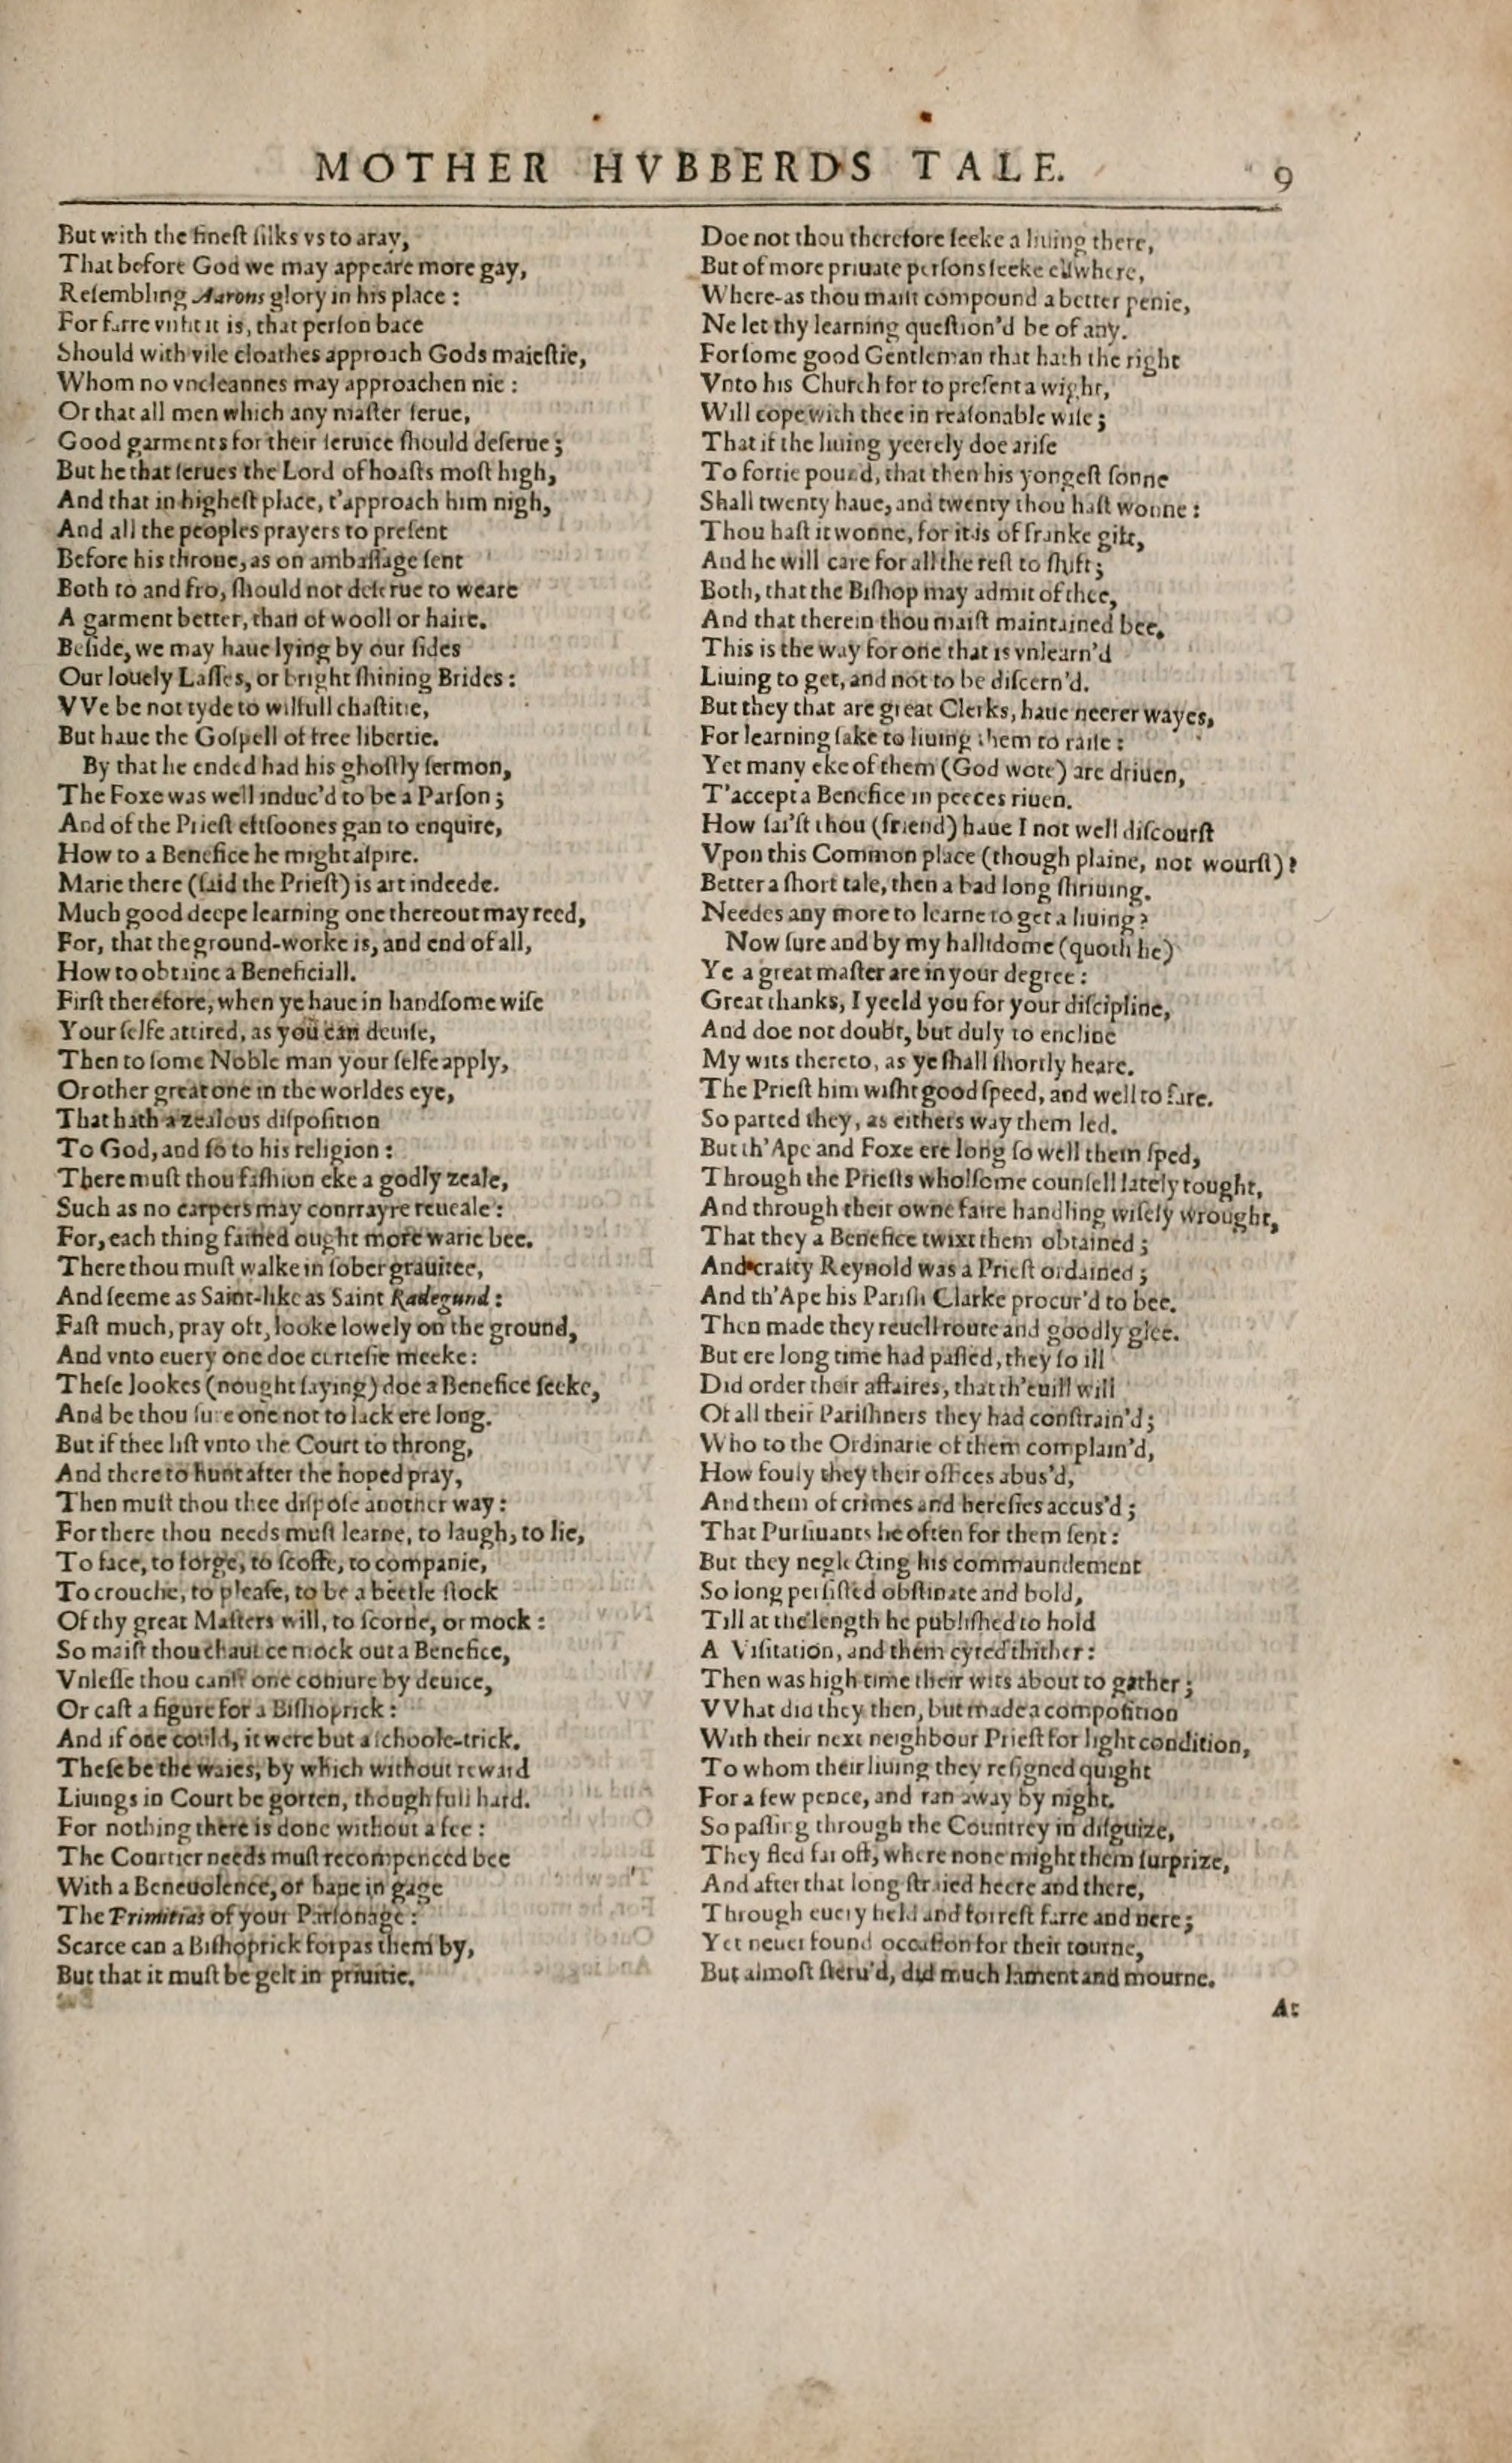 MOTHER HVBBERDS TALE. 9
But with the finest silks vs to aray,
That before God we may appeare more gay,
Resembling Aarons glory in his place:
For farre vnfit it is, that person bace
Should with vile cloathes approach Gods maiestie,
Whom no vncleannes may approachen nie:
Or that all men which any master serue,
Good garments for their seruice should deserue;
But he that serues the Lord of hoasts most high,
And that in highest place, t'approach him nigh,
And all the peoples prayers to present
Before his throne, as on ambassage sent
Both to and fro, should not deserue to weare
A garment better, than of wooll or haire.
Beside, we may haue lying by our sides
Our louely Lasses, or bright shining Brides:
VVe be not tyde to wilfull chastitie,
But haue the Gospell of free libertie.
By that he ended had his ghostly sermon,
The Foxe was well induc'd to be a Parson;
And of the Priest eftsoones gan to enquire,
How to a Benefice he might aspire.
Marie there (said the Priest) is art indeede.
Much good deepe learning one thereout may reed,
For, that the ground-worke is, and end of all,
How to obtaine a Beneficiall.
First therefore, when ye haue in handsome wise
Your selfe attired, as you can deuise,
Then to some Noble man your selfe apply,
Or other great one in the worldes eye,
That hath a zealous disposition
To God, and so to his religion:
There must thou fashion eke a godly zeale,
Such as no carpers may contrayre reueale:
For, each thing fained ought more warie bee.
There thou must walke in sober grauitee,
And seeme as Saint-like as Saint Radegund:
Fast much, pray oft, looke lowely on the ground,
And vnto euery one doe curtesie meeke:
These lookes (nought saying) doe a Benefice seeke,
And be thou sure one not to lack ere long.
But if thee list vnto the Court to throng,
And there to hunt after the hoped pray,
Then must thou thee dispose another way:
For there thou needs must learne, to laugh, to lie,
To face, to forge, to scoffe, to companie,
To crouche, to please, to be a beetle stock
Of thy great Masters will, to scorne, or mock:
So maist thou chaunce mock out a Benefice,
Vnlesse thou canst one coniure by deuice,
Or cast a figure for a Bishoprick:
And if one could, it were but a schoole-trick.
These be the waies, by which without reward
Liuings in Court be gotten, though full hard.
For nothing there is done without a fee:
The Courtier needs must recompenced bee
With a Beneuolence, or haue in gage
The Primitias of your Parsonage:
Scarce can a Bishoprick forpas them by,
But that it must be gelt in priuitie.
Doe not thou therefore seeke a liuing there,
But of more priuate persons seeke elswhere,
Where-as thou maist compound a better penie,
Ne let thy learning question'd be of any.
For some good Gentleman that hath the right
Vnto his Church for to present a wight,
Will cope with thee in reasonable wise;
That if the liuing yeerely doe arise
To fortie pound, that then his yongest sonne
Shall twenty haue, and twenty thou hast wonne:
Thou hast it wonne, for it is of franke gift,
And he will care for all the rest to shift;
Both, that the Bishop may admit of thee,
And that therein thou maist maintained bee.
This is the way for one that is vnlearn'd
Liuing to get, and not to be discern'd.
But they that are great Clerks, haue neerer wayes,
For learning sake to liuing them to raise:
Yet many eke of them (God wote) are driuen,
T'accept a Benefice in peeces riuen.
How sai'st thou (friend) haue I not well discourst
Vpon this Common place (though plaine, not wourst)?
Better a short tale, then a bad long shriuing.
Needes any more to learne to get a liuing?
Now sure and by my hallidome (quoth he)
Ye a great master are in your degree:
Great thanks, I yeeld you for your discipline,
And doe not doubt, but duly to encline
My wits thereto, as ye shall shortly heare.
The Priest him wisht good speed, and well to fare.
So parted they, as eithers way them led.
But th'Ape and Foxe ere long so well them sped,
Through the Priests wholsome counsell lately tought,
And through their owne faire handling wisely wrought,
That they a Benefice twixt them obtained;
And craity Reynold was a Priest ordained;
And th'Ape his Parish Clarke procur'd to bee.
Then made they reuell route and goodly glee.
But ere long time had passed, they so ill
Did order their affaires, that th'euill will
Of all their Parishners they had constrain'd;
Who to the Ordinarie of them complain'd,
How fouly they their offices abus'd,
And them of crimes and heresies accus'd;
That Pursiuants he often for them sent:
But they neglecting his commaundement
So long persisted obstinate and bold,
Till at the length he published to hold
A Visitation, and them cyted thither:
Then was high time their wits about to gather;
VVhat did they then, but made a composition
With their next neighbour Priest for light condition,
To whom their liuing they resigned quight
For a few pence, and ran away by night.
So passing through the Countrey in disguize,
They fled far off, where none might them surprize,
And after that long straied heere and there,
Through euery field and forrest farre and nere;
Yet neuer found occasion for their tourne,
But almost steru'd, did much lament and mourne.
At